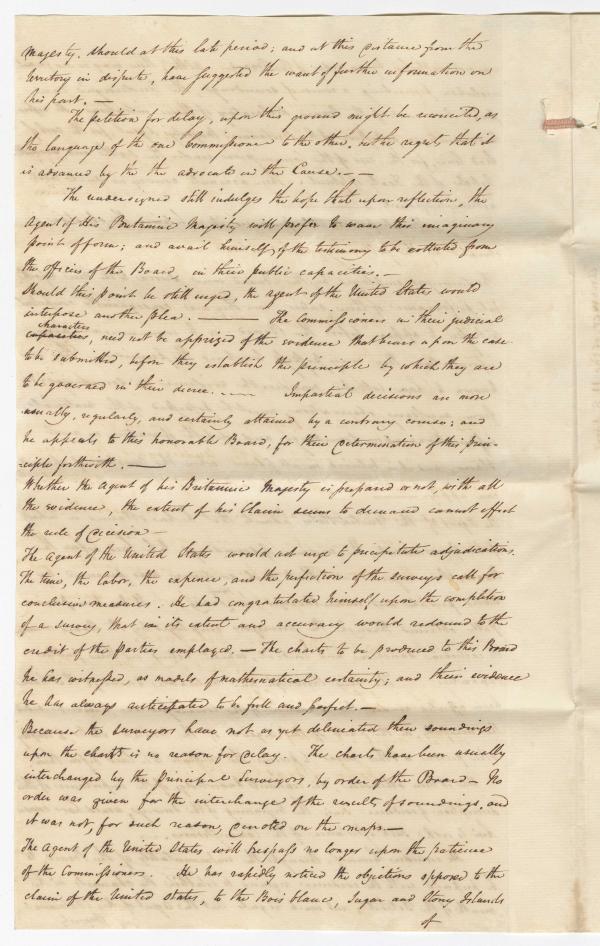 Majesty, should at this late period; and at this distance from the
territory in dispute, have suggested the want of further information on
his part. —
The petition for delay, upon this ground might be reconciled, as
the language of the one Commissioner to the other, but he regrets that it
is advanced by the the advocate in the Cause. — —
The undersigned still indulges the hope that upon reflection, the
Agent of His Britannic Majesty will prefer to wave this imaginary
point of form; and avail himself, of the testimony to be collected from
the officers of the Board, in their public capacities. —
Should this point be still urged, the agent of the United States would
interpose another plea. — The Commissioners in their judicial
characters
capacities, need not be apprized of the evidence that bears upon the case
to be submitted, before they establish the principle by which they are
to be governed in their decree. — Impartial decisions are more
usually, regularly, and certainly attained by a contrary course; and
he appeals to this honorable Board, for their determination of this prin-
-ciple forthwith. —
Whether the Agent of his Britannic Majesty is prepared or not, with all
the evidence, the extent of his claim seems to demand cannot effect
the rule of decision —
The Agent of the United States would not urge to precipitate adjudications.
The time, the labor, the expence, and the perfection of the surveys call for
conclusive measures. He had congratulated himself upon the completion
of a survey, that in its extent and accuracy would redound to the
credit of the Parties employed. — The charts to be produced to this Board
he has witnessed, as models of mathematical certainty; and their evidence
he has always anticipated to be full and perfect. —
Because the surveyors have not as yet delineated their soundings
upon the charts is no reason for delay. The charts have been usually
interchanged by the Principal Surveyors, by order of the Board — No
order was given for the interchange of the results of soundings, and
it was not, for such reason, denoted on the maps. —
The Agent of the United States will trespass no longer upon the patience
of the Commissioners. He has rapidly noticed the objections opposed to the
claim of the United States, to the Bois blanc, Sugar and Stony Islands
of